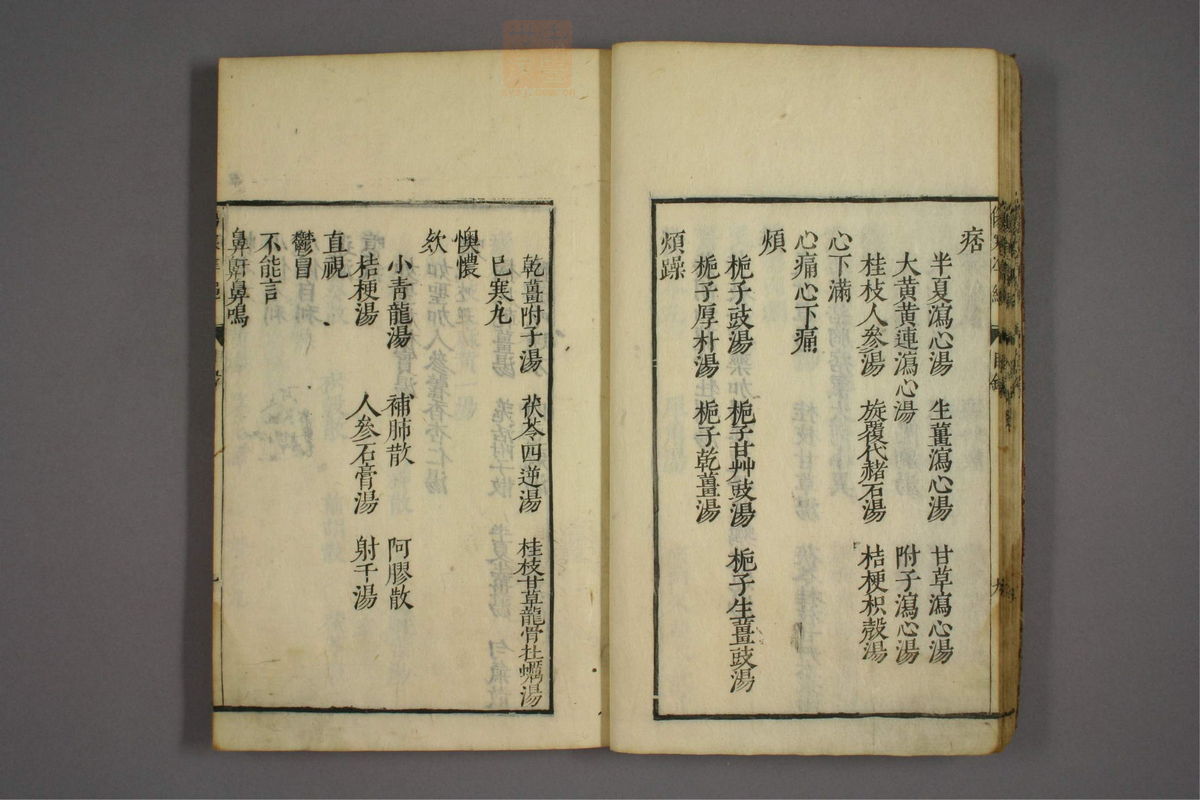 痞
半夏瀉心湯 生薑瀉心湯 甘草瀉心湯
大黃黃連瀉心湯 附子瀉心湯
桂枝人參湯 旋覆代赭石湯 桔梗枳殼湯
心下滿
心痛心下痛
煩
梔子豉湯 梔子甘艸豉湯 梔子生薑豉湯
梔子厚朴湯 梔子乾薑湯
煩躁
乾薑附子湯 茯苓四逆湯 桂枝甘草龍骨牡蠣湯
巳寒丸
懊憹
欬
小靑龍湯 補肺散 阿膠散
桔梗湯 人參石膏湯 射干湯
直視
鬱冒
不能言
鼻鼾鼻鳴